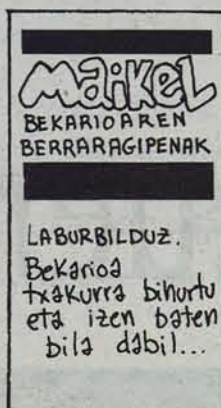 MAiKeL
BEKARIOAREN
BERRARAGIPENAK
LABURBILDUZ.
BeKarioa
txakurra bihurtu
eta izen baten
bila dabil...